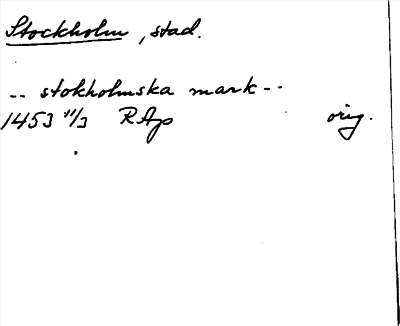 Stockholm, stad.
-- stokholmska mark --
1453 11/3 RAp orig.